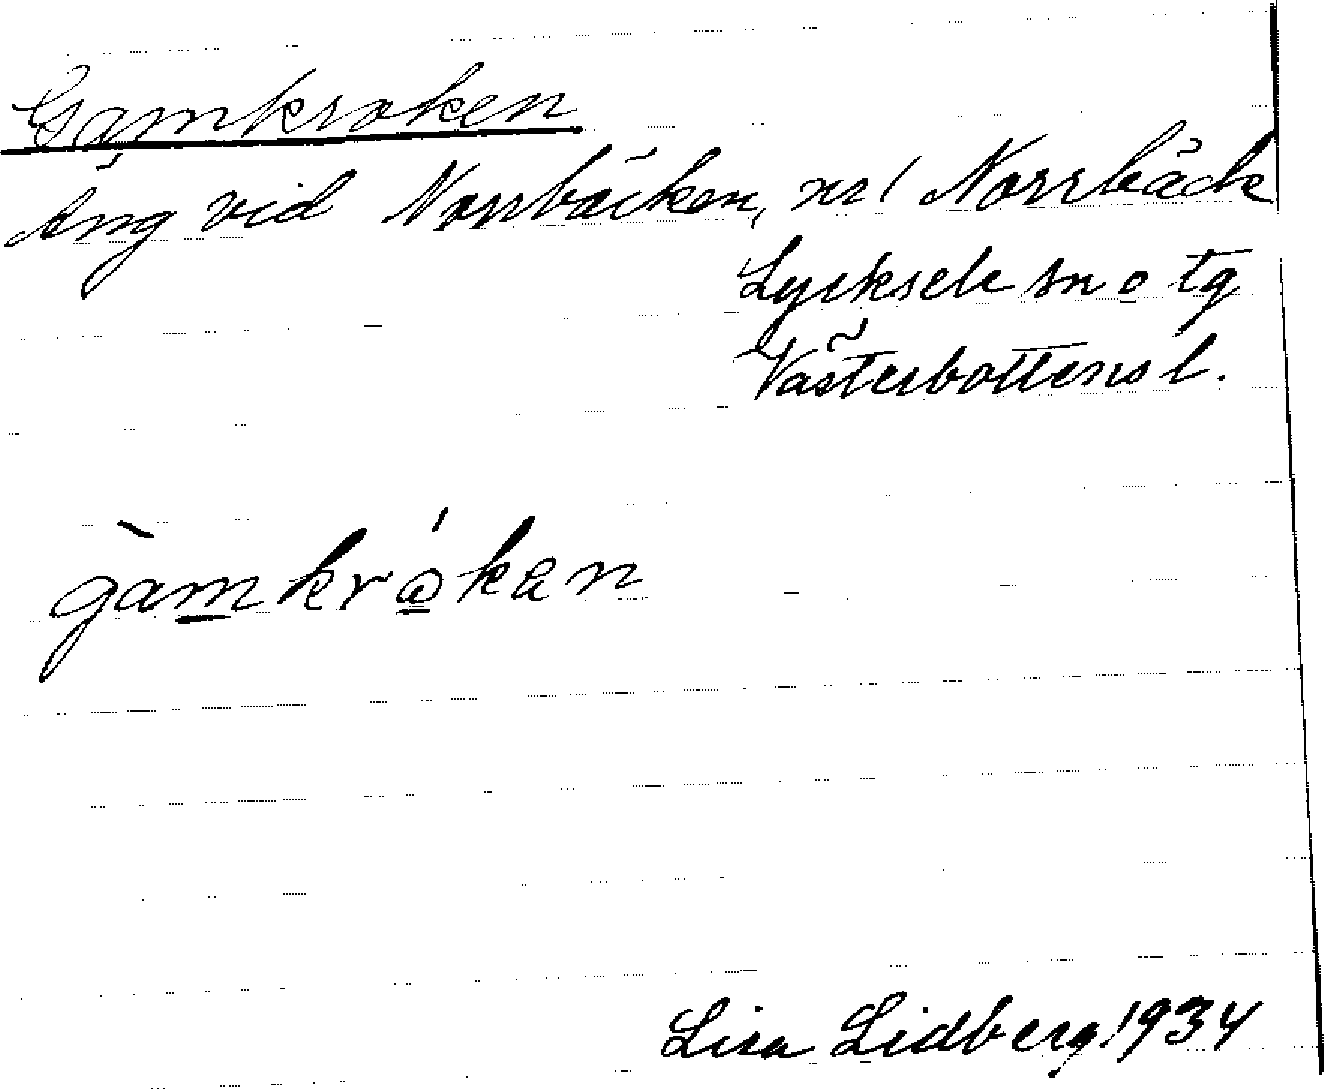 Gamkroken
Äng vid Norrbäcken, nr 1 Norrbäck
Lycksele sn o tg
Västerbottens l.
gàmkrákan
Lisa Lidberg 1934